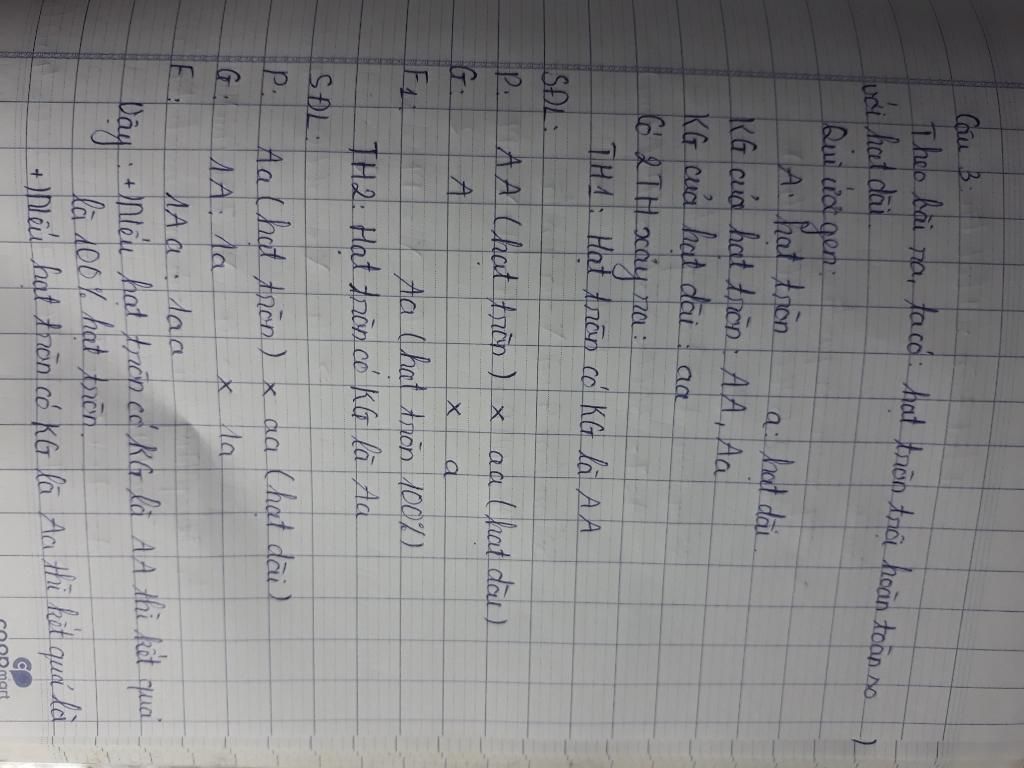 Câu 3:
Theo bài ra, ta có: hạt tròn trội hoàn toàn so
với hạt dài.
Qui ước gen:
A: hạt tròn a: hạt dài
KG của hạt tròn: AA, Aa
KG của hạt dài: aa
Có 2 TH xảy ra:
TH1: Hạt tròn có KG là AA
SĐL:
P: AA (hạt tròn) x aa (hạt dài)
G: A x a
F1: Aa (hạt tròn 100%)
TH2: Hạt tròn có KG là Aa
SĐL:
P: Aa (hạt tròn) x aa (hạt dài)
G: 1A : 1a x 1a
F: 1Aa : 1aa
Vậy: + Nếu hạt tròn có KG là AA thì kết quả
là 100% hạt tròn.
+ Nếu hạt tròn có KG là Aa thì kết quả là